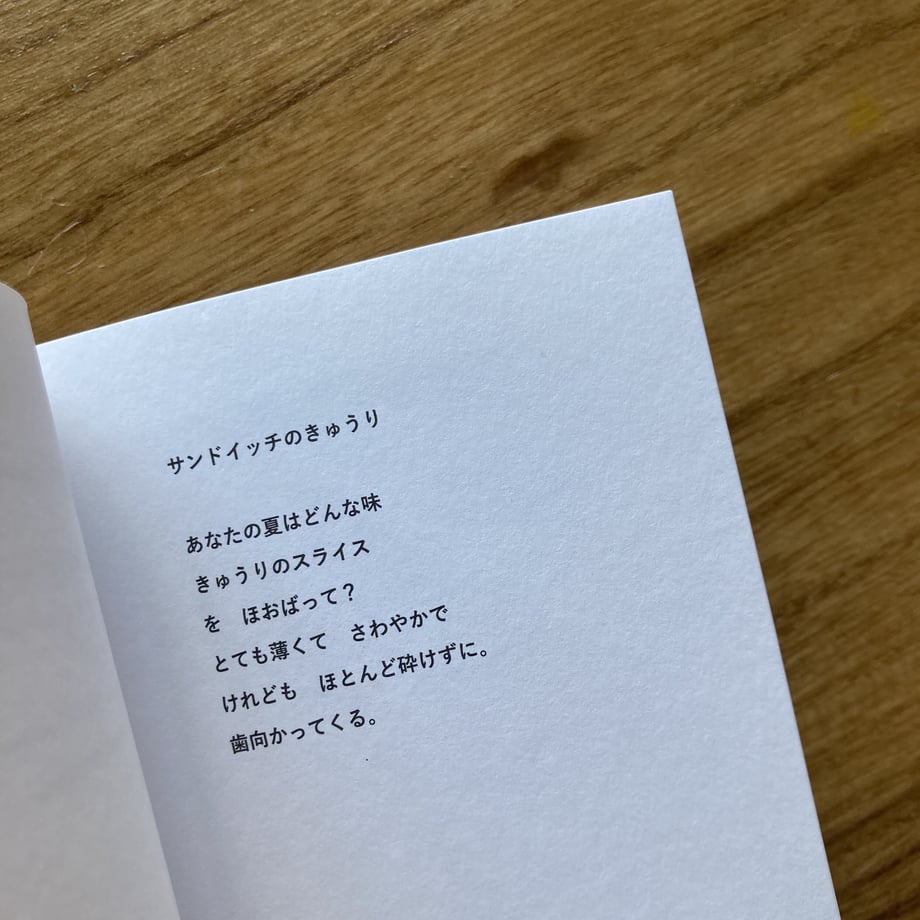 サンドイッチのきゅうり
あなたの夏はどんな味
きゅうりのスライス
を　ほおばって？
とても薄くて　さわやかで
けれども　ほとんど砕けずに。
歯向かってくる。